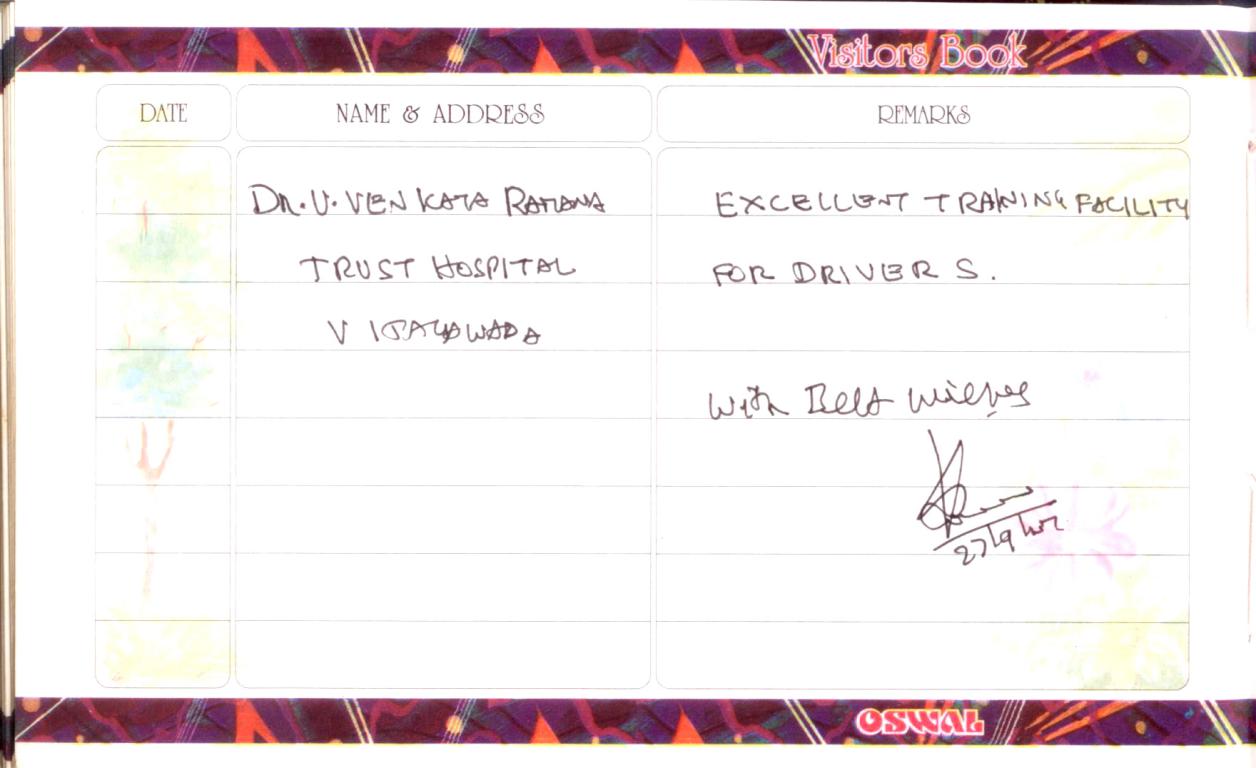 Visitors Book
DATE
NAME & ADDRESS
REMARKS
DR. V. VENKATA RAMANA
TRUST HOSPITAL
VIJAYAWADA
EXCELLENT TRAINING FACILITY
FOR DRIVERS.
With Best wishes
OSWAL